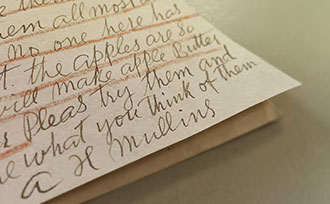 em all almost
no one here has
t. the apples are so
will make apple Butter
Pleas try them and
e what you think of them
A H Mullins